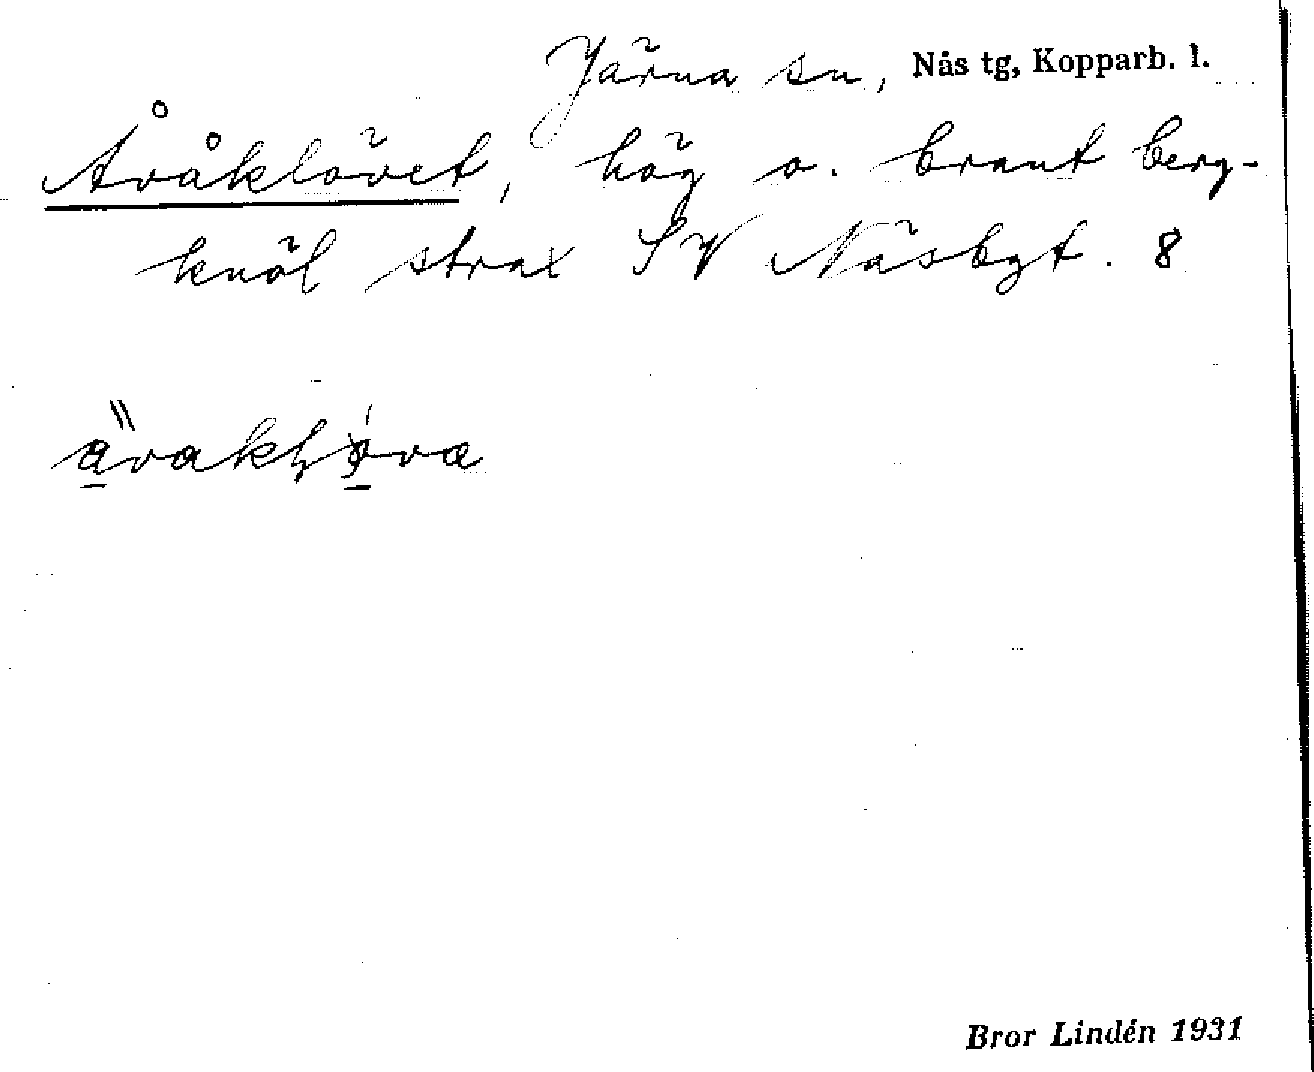 Järna sn, Nås tg, Kopparb. l.
Åvåklövet, hög o. brant berg-
knöl strax SV Näsbyt. 8
Bror Lindén 1931